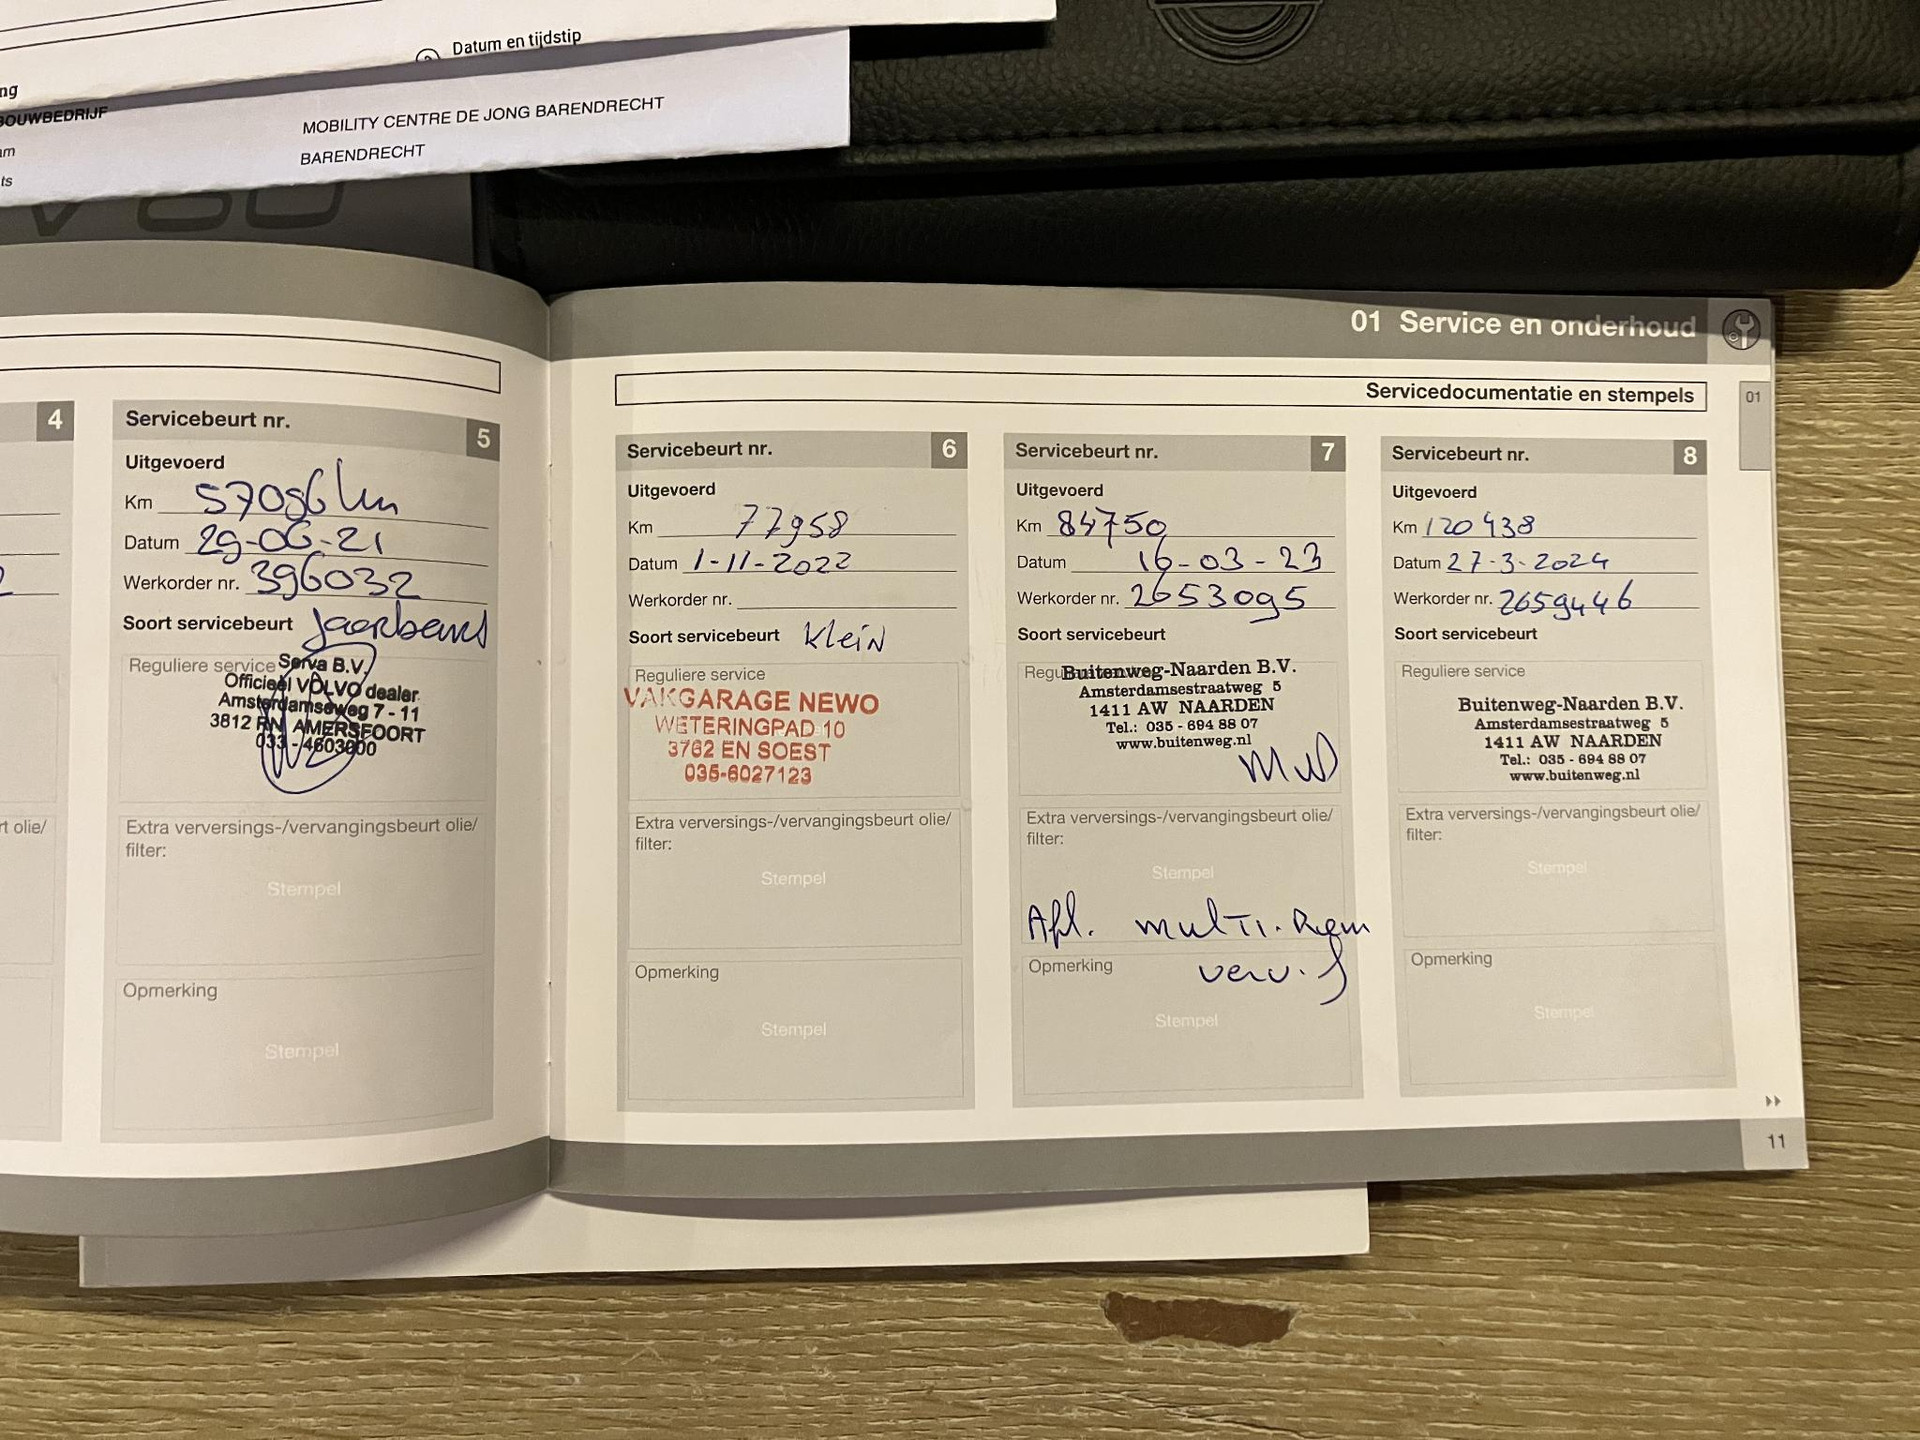 Datum en tijdstip
ng
BOUWBEDRIJF
MOBILITY CENTRE DE JONG BARENDRECHT
am
BARENDRECHT
ts
V60
4
rt olie/
Servicebeurt nr. 5
Uitgevoerd
Km 57096 km
Datum 29-06-21
Werkorder nr. 396032
Soort servicebeurt Jaarbeurt
Reguliere service
Serva B.V.
Officieel VOLVO dealer
Amsterdamseweg 7 - 11
3812 RN AMERSFOORT
033 - 4603000
Extra verversings-/vervangingsbeurt olie/
filter:
Stempel
Opmerking
Stempel
01 Service en onderhoud
Servicedocumentatie en stempels
01
Servicebeurt nr. 6
Uitgevoerd
Km 77958
Datum 1-11-2022
Werkorder nr.
Soort servicebeurt Klein
Reguliere service
VAKGARAGE NEWO
WETERINGPAD 10
3762 EN SOEST
035-6027123
Extra verversings-/vervangingsbeurt olie/
filter:
Stempel
Opmerking
Stempel
Servicebeurt nr. 7
Uitgevoerd
Km 84750
Datum 16-03-23
Werkorder nr. 2653095
Soort servicebeurt
Buitenweg-Naarden B.V.
Amsterdamsestraatweg 5
1411 AW NAARDEN
Tel.: 035 - 694 88 07
www.buitenweg.nl
Extra verversings-/vervangingsbeurt olie/
filter:
Stempel
Afl. multi. Riem
Opmerking verv.
Stempel
Servicebeurt nr. 8
Uitgevoerd
Km 120438
Datum 27-3-2024
Werkorder nr. 2659446
Soort servicebeurt
Reguliere service
Buitenweg-Naarden B.V.
Amsterdamsestraatweg 5
1411 AW NAARDEN
Tel.: 035 - 694 88 07
www.buitenweg.nl
Extra verversings-/vervangingsbeurt olie/
filter:
Stempel
Opmerking
Stempel
11